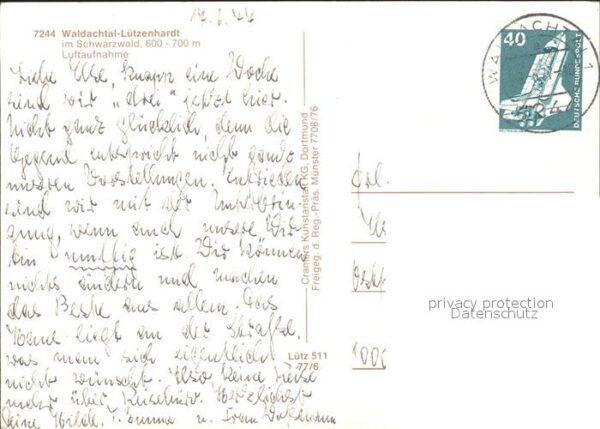 14.6.77
7244 Waldachtal-Lützenhardt
im Schwarzwald, 600 - 700 m
Luftaufnahme
Liebe Ilse, knapp eine Woche
sind wir „drei“ jetzt hier.
Nicht ganz glücklich, denn die
Gegend entspricht nicht ganz
unseren Vorstellungen. Zufrieden
sind wir mit der Unterbrin-
gung, wenn auch unsere Wir-
tin ist. Wir können
nichts ändern und machen
das Beste aus allem. Das
Heim liegt an der Straße,
was man sich eigentlich
nicht wünscht. Also keine Reise
mehr über Herzlichst
Deine Hilde, T. Emma u. Frau
Cramers Kunstanstalt KG, Dortmund
Freigeg. d. Reg.-Präs. Münster 7708/76
Lütz 511
77/6
40
DEUTSCHE BUNDESPOST
WALDACHTAL 1
7244
privacy protection
Datenschutz
1000